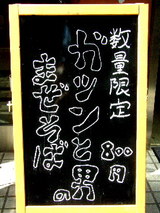 数量限定
ガツンと男の
まぜそば
800円